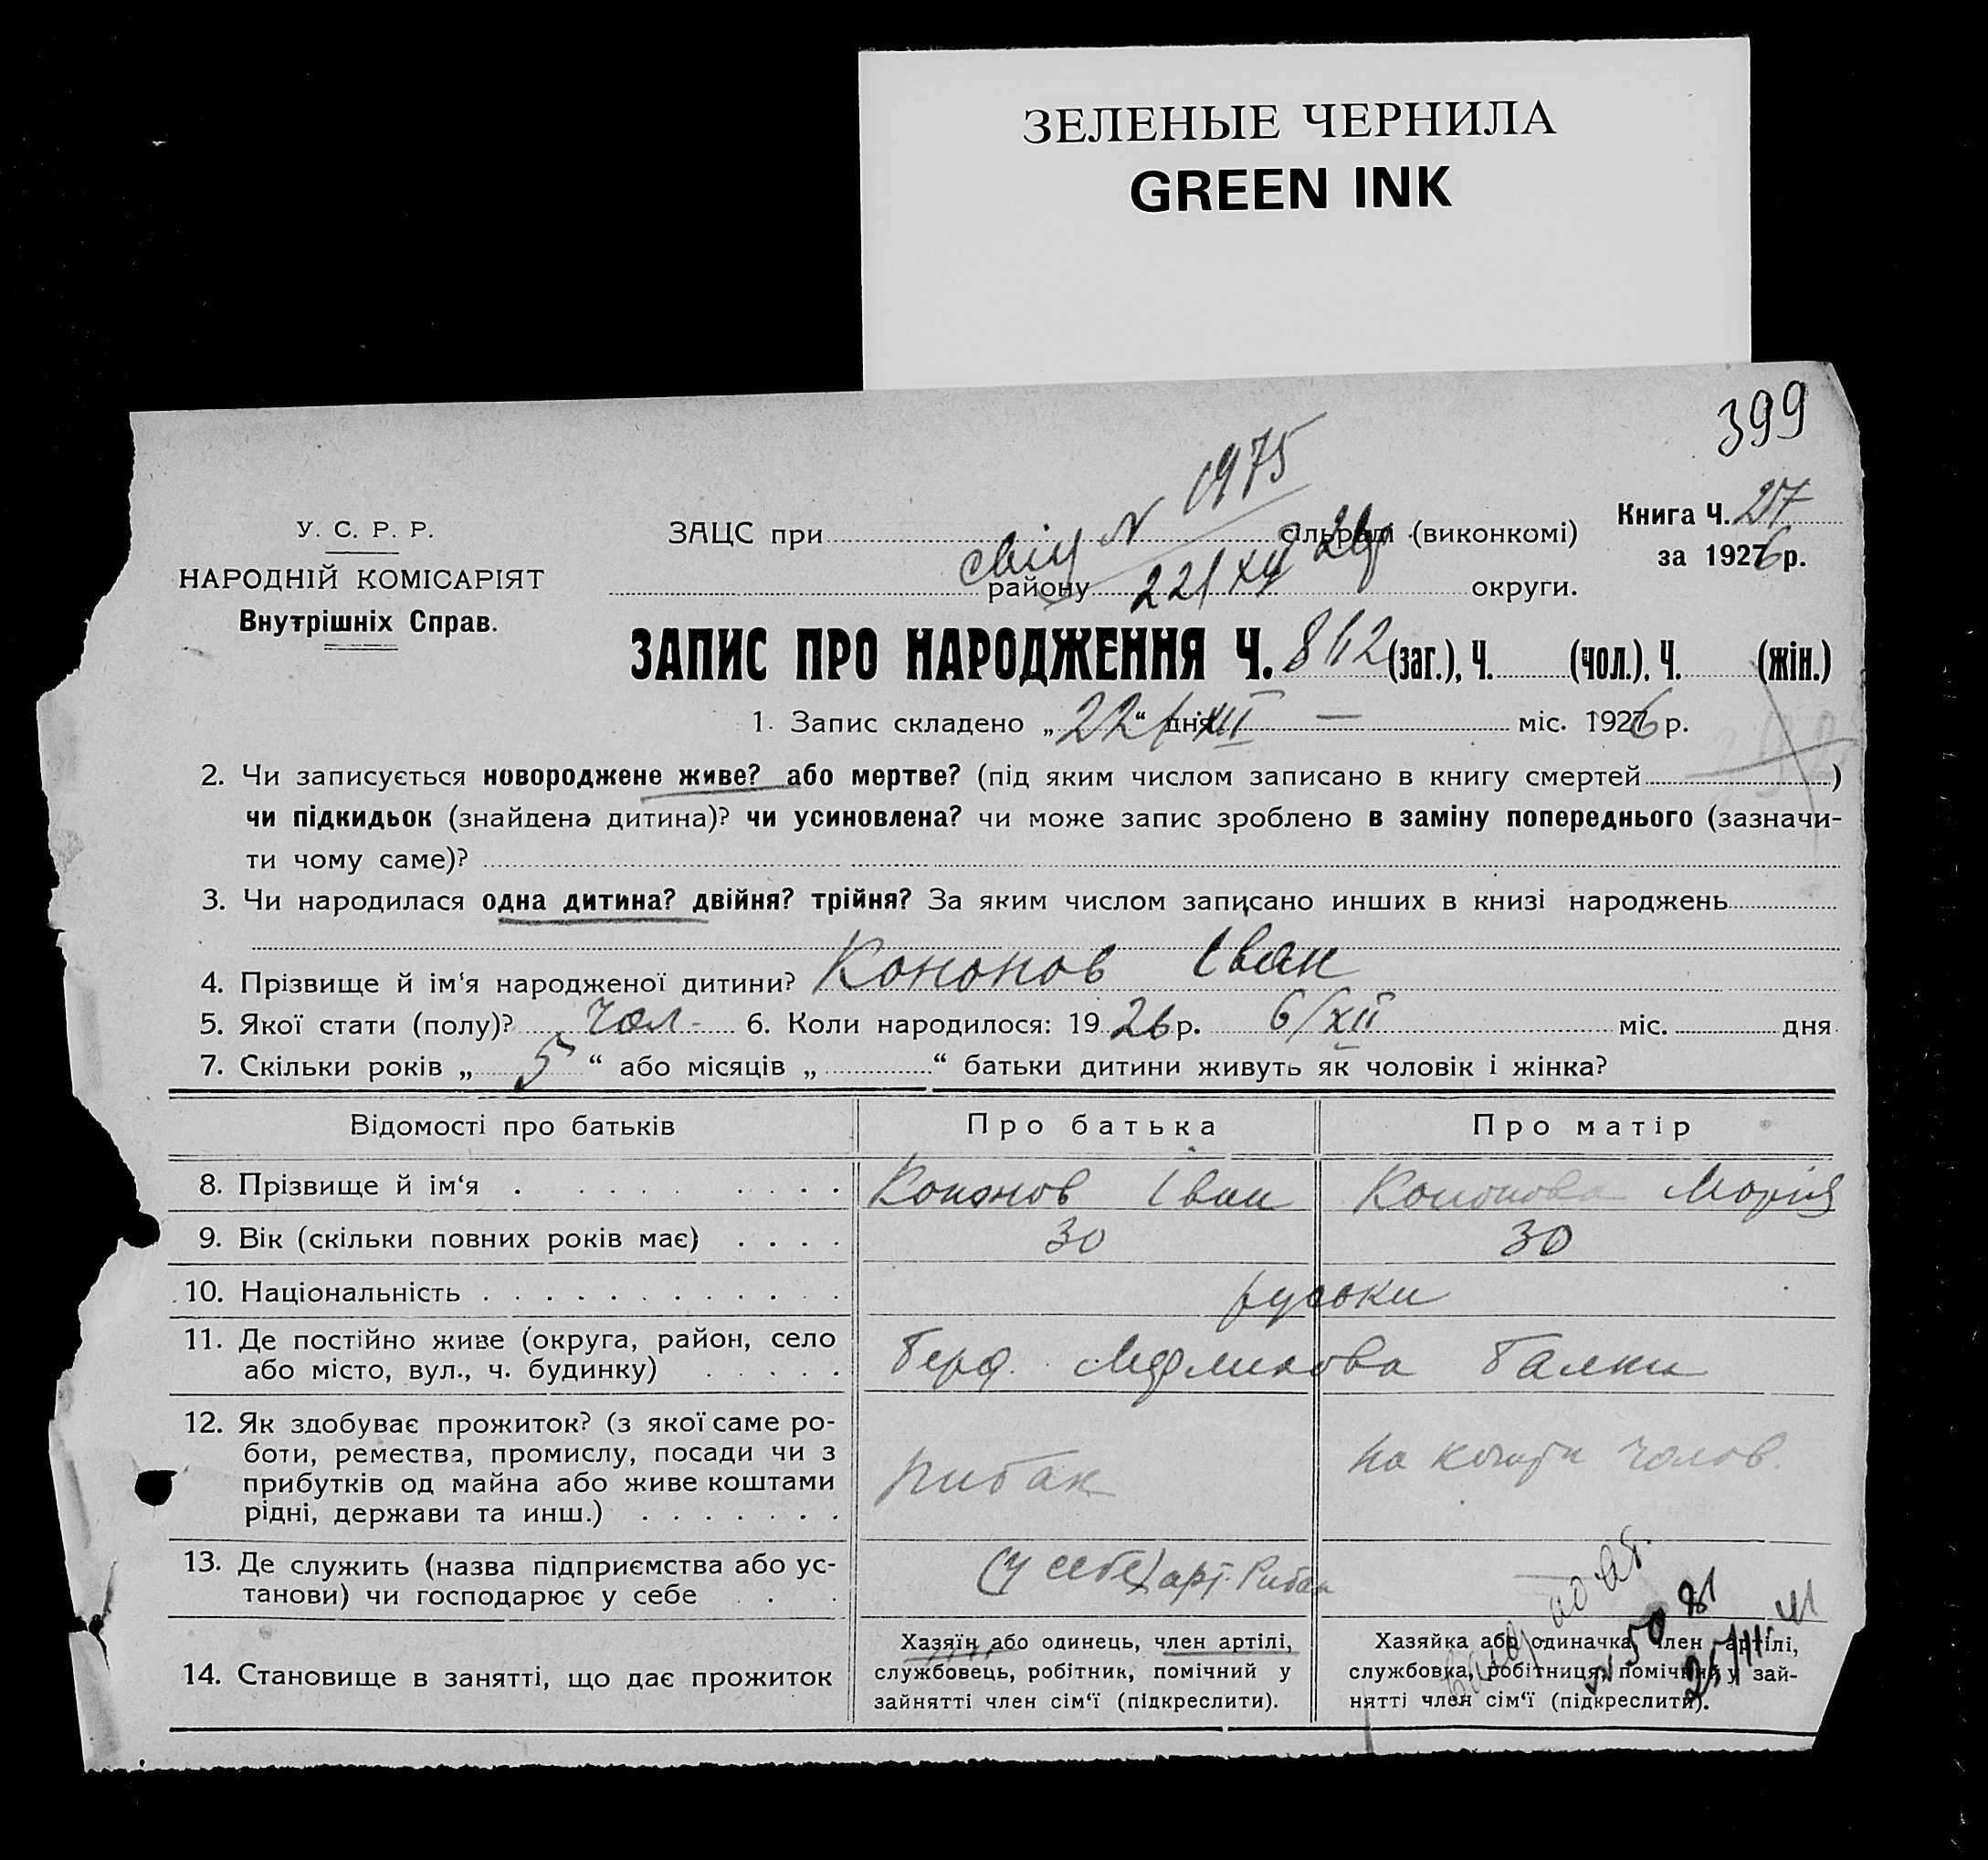 ЗЕЛЕНЫЕ ЧЕРНИЛА
GREEN INK
399
У. С. Р. Р.
НАРОДНІЙ КОМІСАРІЯТ
Внутрішніх Справ.
N 1975
ЗАЦС при сільраді (виконкомі)
свід
району 22/XII 26р округи.
Книга Ч. 27
за 1926 р.
ЗАПИС ПРО НАРОДЖЕННЯ Ч. 862 (заг.), Ч. (чол.), Ч. (жін.)
1. Запис складено „22“ дня XII — міс. 1926 р.
2. Чи записується новороджене живе? або мертве? (під яким числом записано в книгу смертей )
чи підкидьок (знайдена дитина)? чи усиновлена? чи може запис зроблено в заміну попереднього (зазначи-
ти чому саме)?
3. Чи народилася одна дитина? двійня? трійня? За яким числом записано инших в книзі народжень
4. Прізвище й ім‘я народженої дитини? Кононов Іван
5. Якої стати (полу)? чол. 6. Коли народилося: 1926 р. 6/XII міс. дня
7. Скільки років „ 5 “ або місяців „ “ батьки дитини живуть як чоловік і жінка?
Відомості про батьків Про батька Про матір
8. Прізвище й ім‘я Кононов Іван Кононова Марія
9. Вік (скільки повних років має) 30 30
10. Національність руськи
11. Де постійно живе (округа, район, село
або місто, вул., ч. будинку) Берд. Балки
12. Як здобуває прожиток? (з якої саме ро-
боти, ремества, промислу, посади чи з
прибутків од майна або живе коштами
рідні, держави та инш.) Рибак На кошти чолов.
13. Де служить (назва підприємства або ус-
танови) чи господарює у себе (у себе) арт. Рибак —
14. Становище в занятті, що дає прожиток
Хазяїн або одинець, член артілі,
службовець, робітник, помічний у
зайнятті член сім‘ї (підкреслити).
Хазяйка або одиначка, член артілі,
службовка, робітниця, помічний у зай-
нятті член сім‘ї (підкреслити).